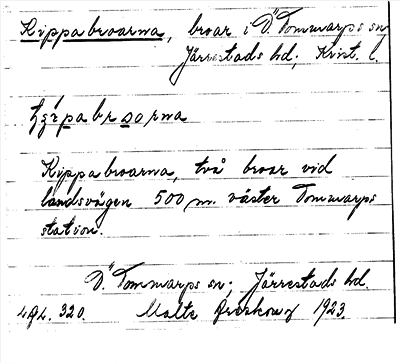 Kippabroarna, broar i Ö. Tommarps sn,
Järrestads hd; Krist. l.
Kippabroarna, två broar vid
landsvägen 500 m. väster Tommarps
station.
Ö. Tommarps sn; Järrestads hd.
320. Malte 1923.